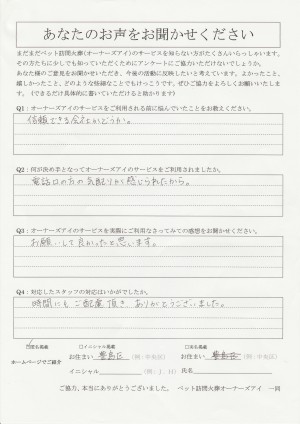 あなたのお声をお聞かせください
まだまだペット訪問火葬(オーナーズアイ)のサービスを知らない方がたくさんいらっしゃいます。
その方たちに少しでも知っていただくためにアンケートにご協力いただけないでしょうか。
あなた様のご意見をお聞かせいただき、今後の活動に反映したいと考えています。よかったこと、
嬉しかったこと、どのような些細なことでもけっこうです。ぜひご協力をよろしくお願いいたしま
す。(できるだけ具体的に書いていただけると助かります)
Q1:オーナーズアイのサービスをご利用される前に悩んでいたことをお教えください。
信頼できる会社かどうか。
Q2:何が決め手となってオーナーズアイのサービスをご利用されましたか。
電話口の方の気配りが感じられたから。
Q3:オーナーズアイのサービスを実際にご利用なさってみての感想をお聞かせください。
お願いして良かったと思います。
Q4:対応したスタッフの対応はいかがでしたか。
時間にもご配慮頂き ありがとうございました。
匿名掲載 □イニシャル掲載 □実名掲載
ホームページでご紹介 お住まい 豊島区 (例:中央区) お住まい 豊島区 (例:中央区)
イニシャル (例:J.H) 氏名
ご協力、本当にありがとうございました。 ペット訪問火葬オーナーズアイ 一同